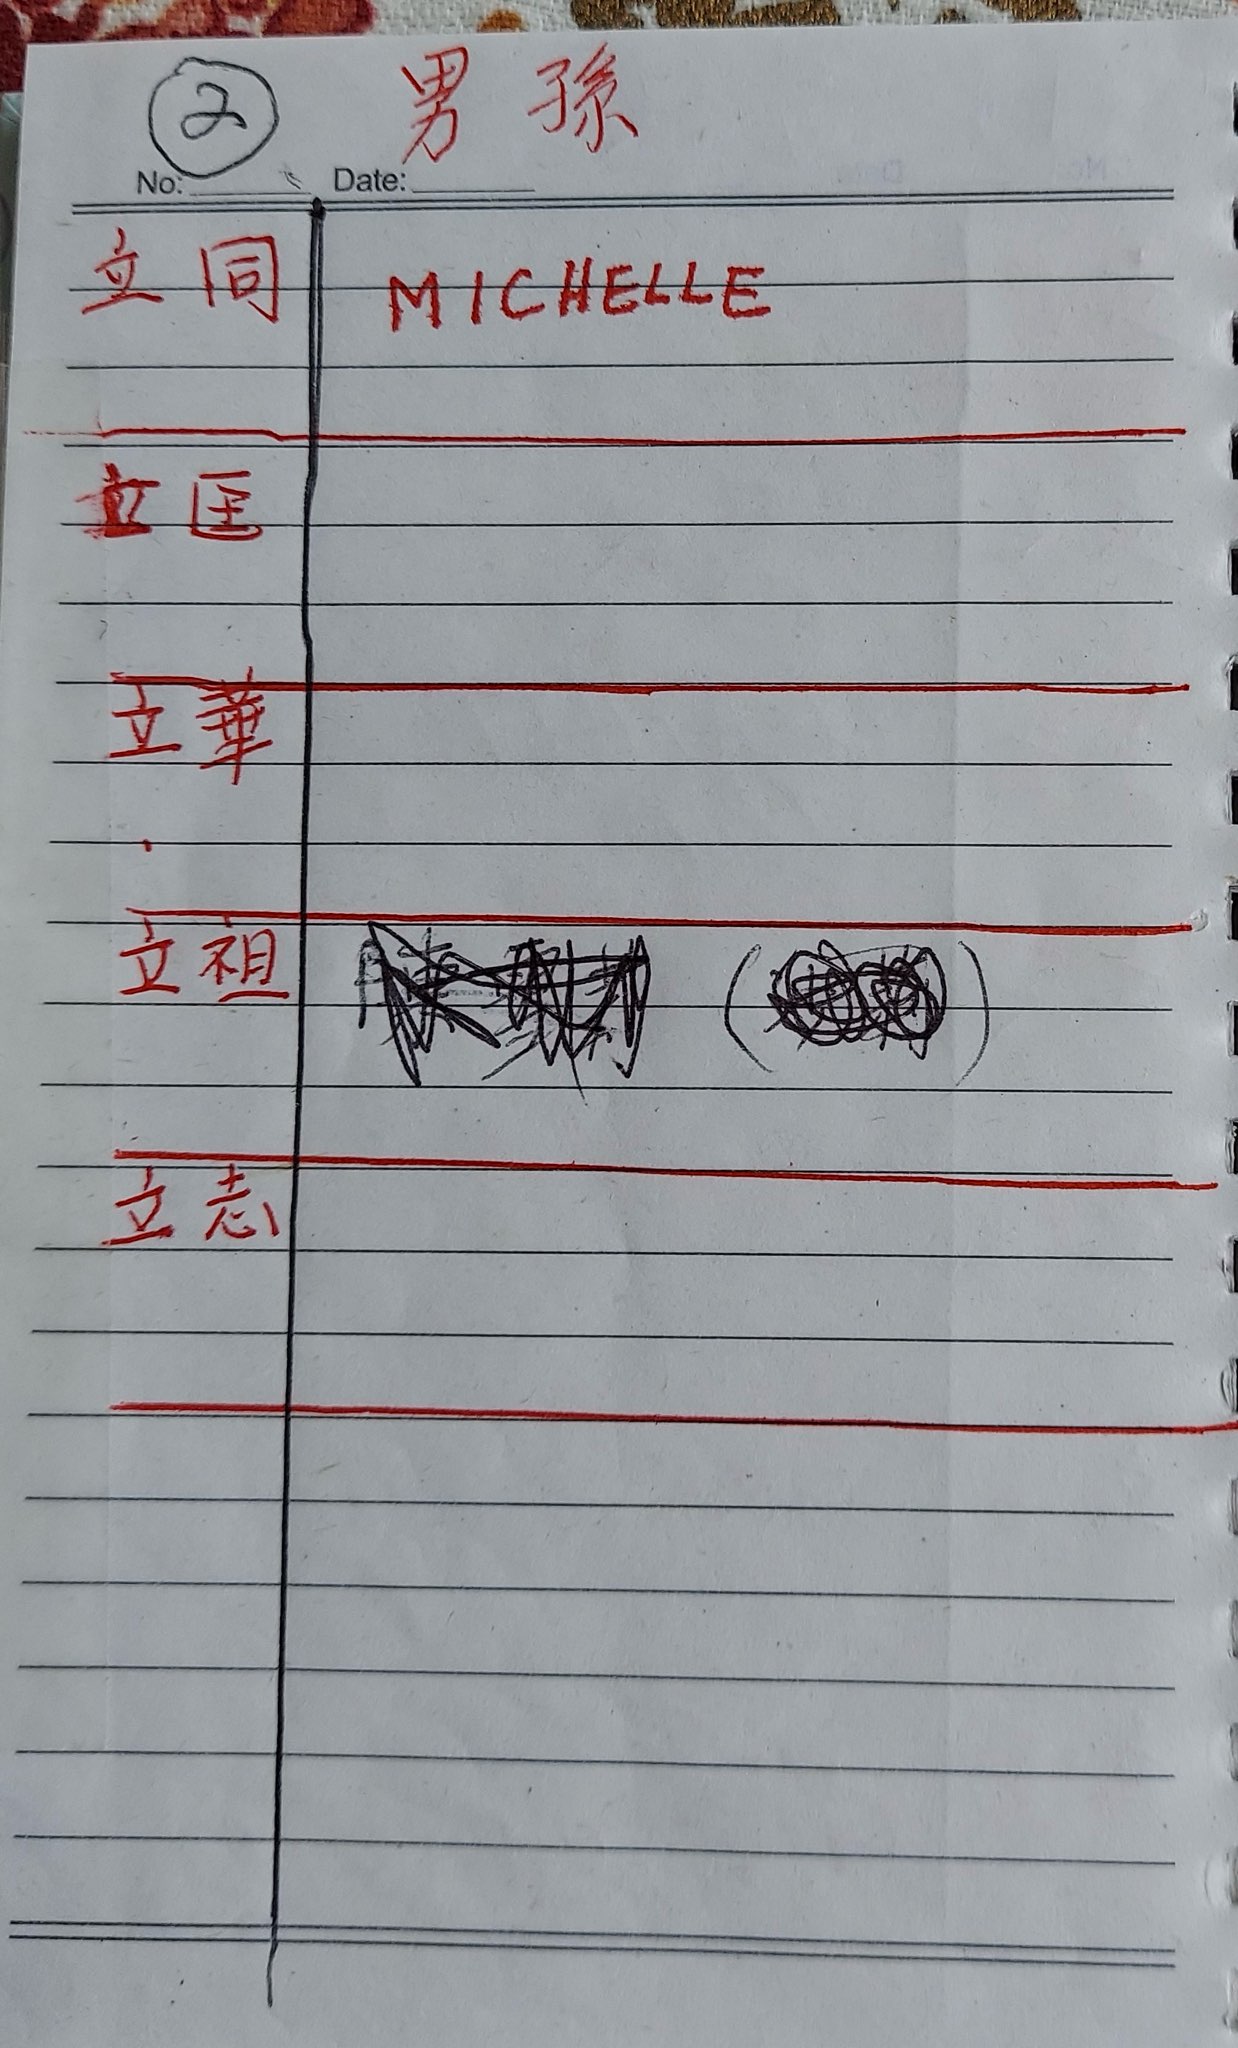 ② 男孫
No: Date:
立同 MICHELLE
立匡
立華
立祖
立志